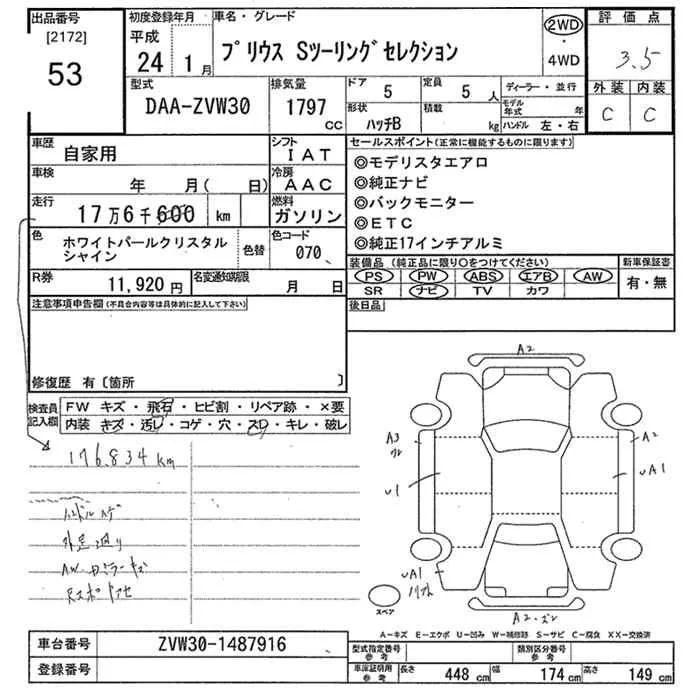 出品番号
[2172]
53
初度登録年月
平成
24 1月
車名・グレード
プリウス Sツーリングセレクション
2WD
・
4WD
評価点
3.5
外装 内装
C C
型式
DAA-ZVW30
排気量
1797
CC
ドア 5
定員 5 人
形状 ハッチB
積載 kg
ディーラー・並行
モデル年式 年
ハンドル 左・右
車歴 自家用
シフト IAT
車検 年 月( 日)
冷房 AAC
走行 17万6千600 km
燃料 ガソリン
色 ホワイトパールクリスタルシャイン
色替
色コード 070
R券 11,920円
名変通知期限 月 日
セールスポイント(正常に機能するものに限ります)
◎モデリスタエアロ
◎純正ナビ
◎バックモニター
◎ETC
◎純正17インチアルミ
装備品(純正品に限り○をつけてください)
PS PW ABS エアB AW
SR ナビ TV カワ
新車保証書
有・無
後日品
注意事項申告欄(不具合内容等は具体的に記入して下さい)
修復歴 有〔箇所 〕
検査員記入欄
FW キズ・飛石・ヒビ割・リペア跡・×要
内装 キズ・汚レ・コゲ・穴・スレ・キレ・破レ
176.834 km
ハンドルハゲ
AW
A2
A3
A2
U1
UA1
UA1
A2
スペア
A-キズ E-エクボ U-凹み W-補修跡 S-サビ C-腐食 XX-交換済
車台番号 ZVW30-1487916
登録番号
型式指定番号 参考
類別区分番号 参考
車庫証明用 参考
長さ 448 cm
幅 174 cm
高さ 149 cm